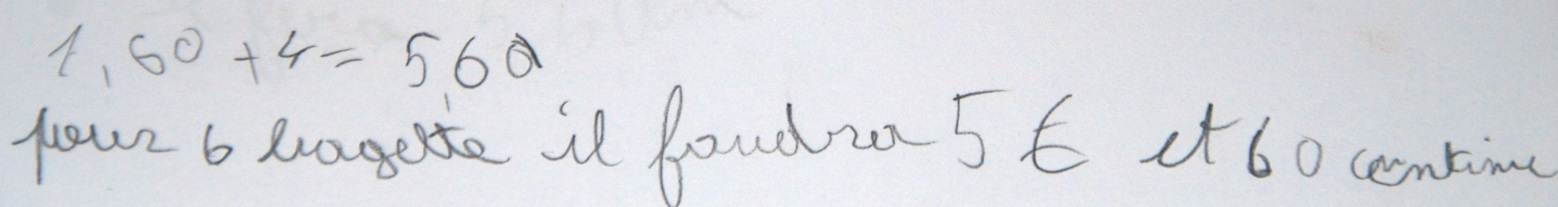 1,60 + 4 = 5,60
pour 6 bagette il faudra 5 € et 60 centime